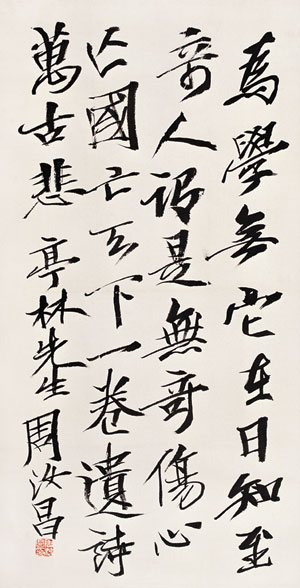 為學無它在日知至
奇人詣是無奇傷心
亡國亡天下一卷遺詩
萬古悲 亭林先生 周汝昌